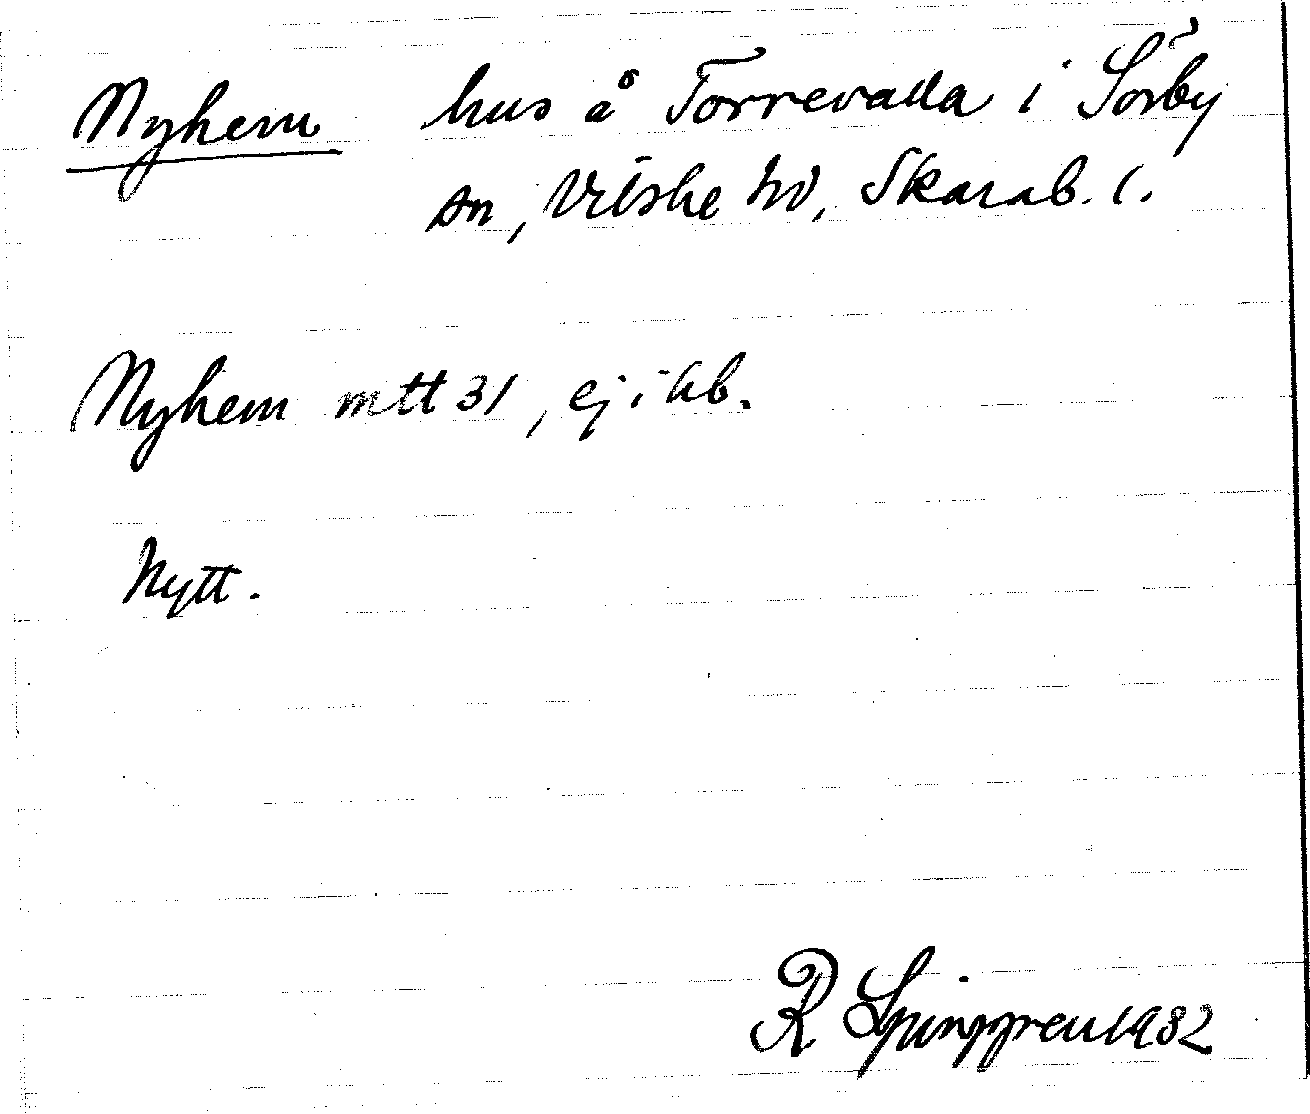 Nyhem hus å Torrevalla i Sörby
sn, Vilske hd, Skarab. l.
Nyhem mtt 31, ej i kb.
Nytt.
R Ljunggren 1932